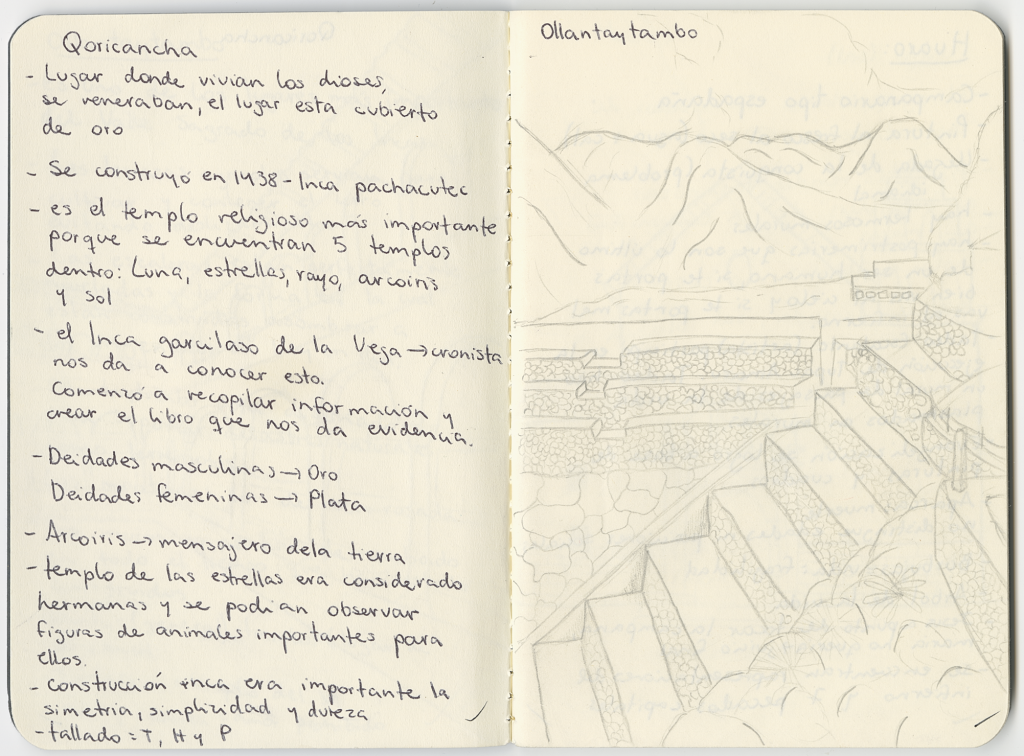 Qoricancha
- Lugar donde vivian los dioses,
se veneraban, el lugar esta cubierto
de oro
- Se construyó en 1438 - Inca pachacutec
- es el templo religioso más importante
porque se encuentran 5 templos
dentro: Luna, estrellas, rayo, arcoiris
y sol
- el Inca garcilaso de la Vega → cronista
nos da a conocer esto.
Comenzó a recopilar información y
crear el libro que nos da evidencia.
- Deidades masculinas → Oro
Deidades femeninas → Plata
- Arcoiris → mensajero dela tierra
- templo de las estrellas era considerado
hermanas y se podian observar
figuras de animales importantes para
ellos.
- construcción inca era importante la
simetria, simplizidad y dureza
- tallado = T, H y P
Ollantaytambo